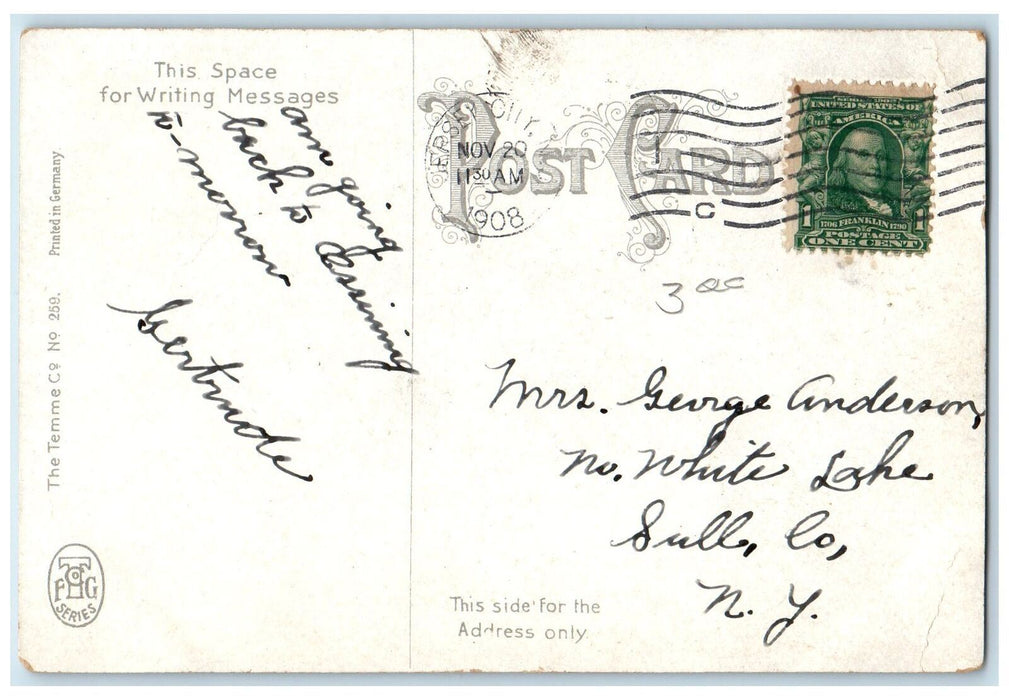 This Space
for Writing Messages
am going
back to Ossining
to-morrow
Gertrude
Printed in Germany.
The Temme Co. No 259.
SERIES
POST CARD
JERSEY CITY, N.
NOV 20
11 30 AM
1908
C
SERIES 1902
UNITED STATES OF
AMERICA
1 1
1706 FRANKLIN 1790
POSTAGE
ONE CENT
3
Mrs. George Anderson,
No. White Lake
Sull, Co,
N. Y.
This side for the
Address only.